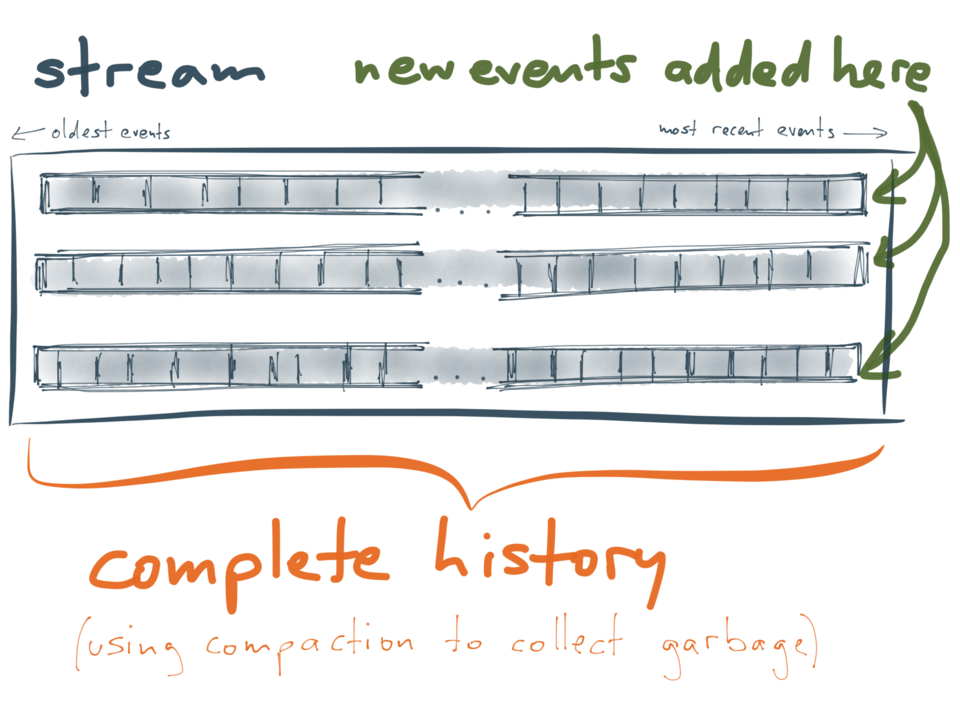 stream
new events added here
← oldest events
most recent events →
. . .
. . .
. . .
complete history
(using compaction to collect garbage)